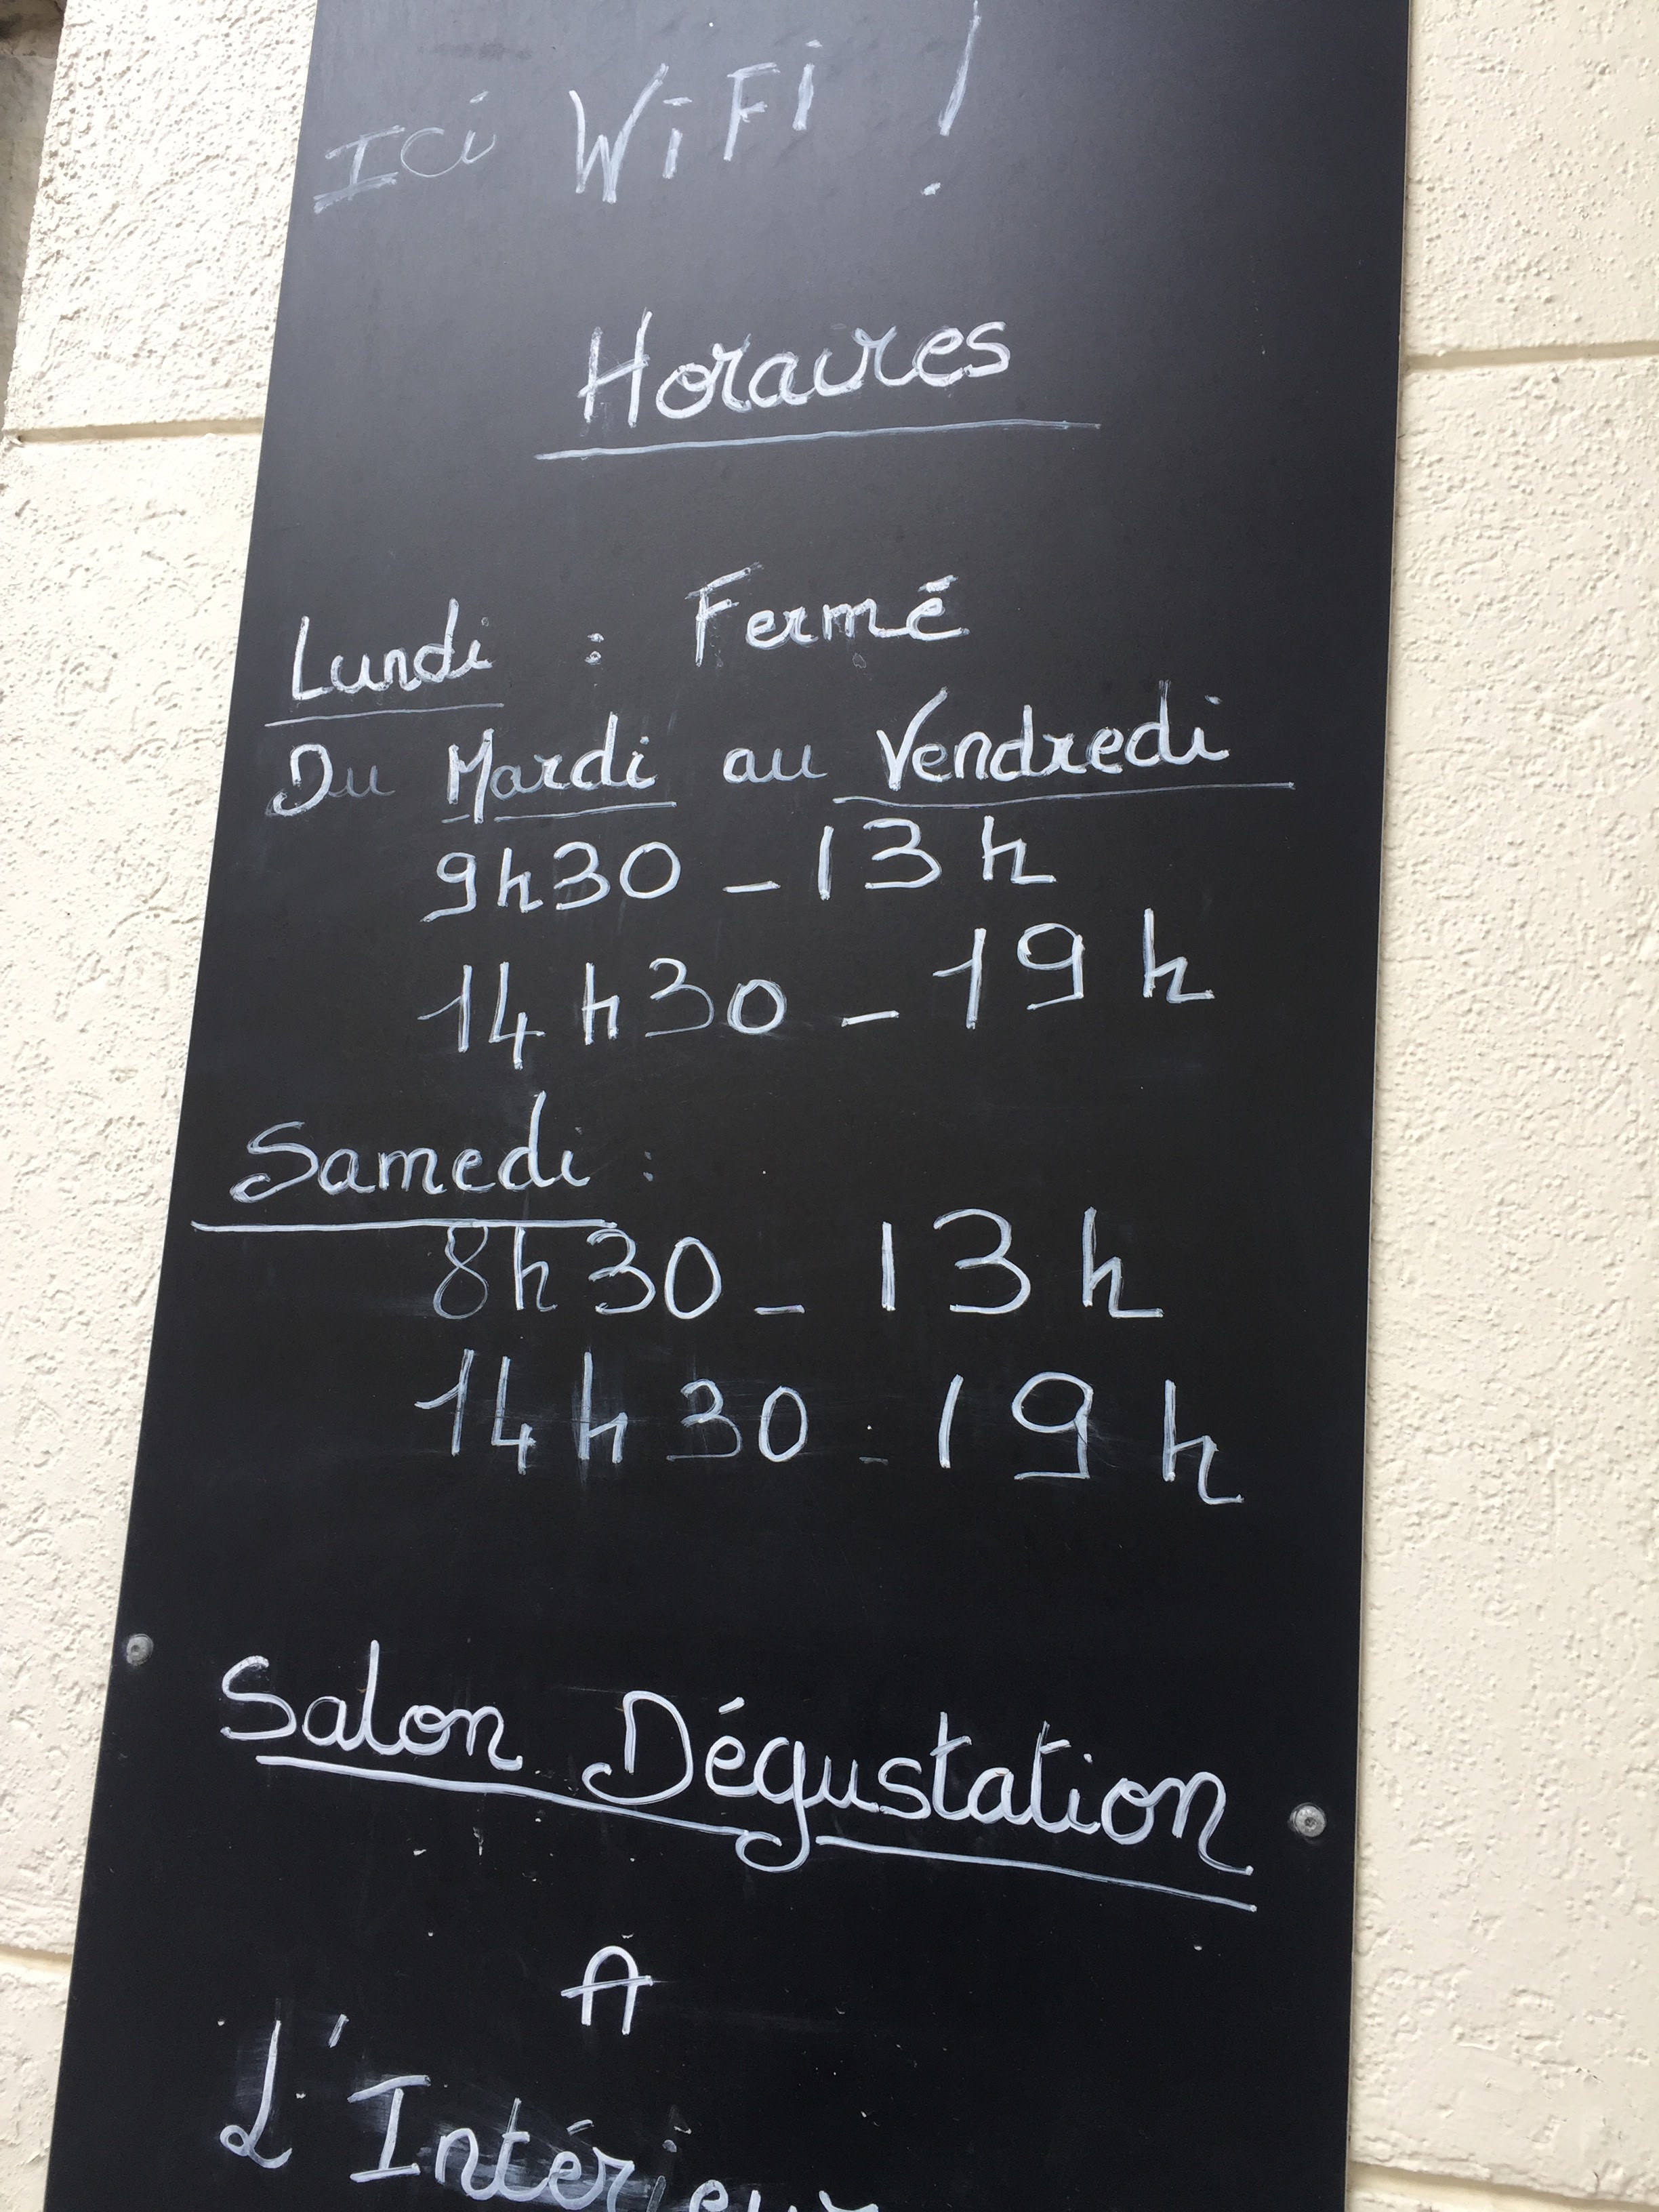 Ici WiFi !
Horaires
Lundi : Fermé
Du Mardi au Vendredi
9h30 - 13h
14h30 - 19h
Samedi :
8h30 - 13h
14h30 - 19h
Salon Dégustation
A
L'Intérieur